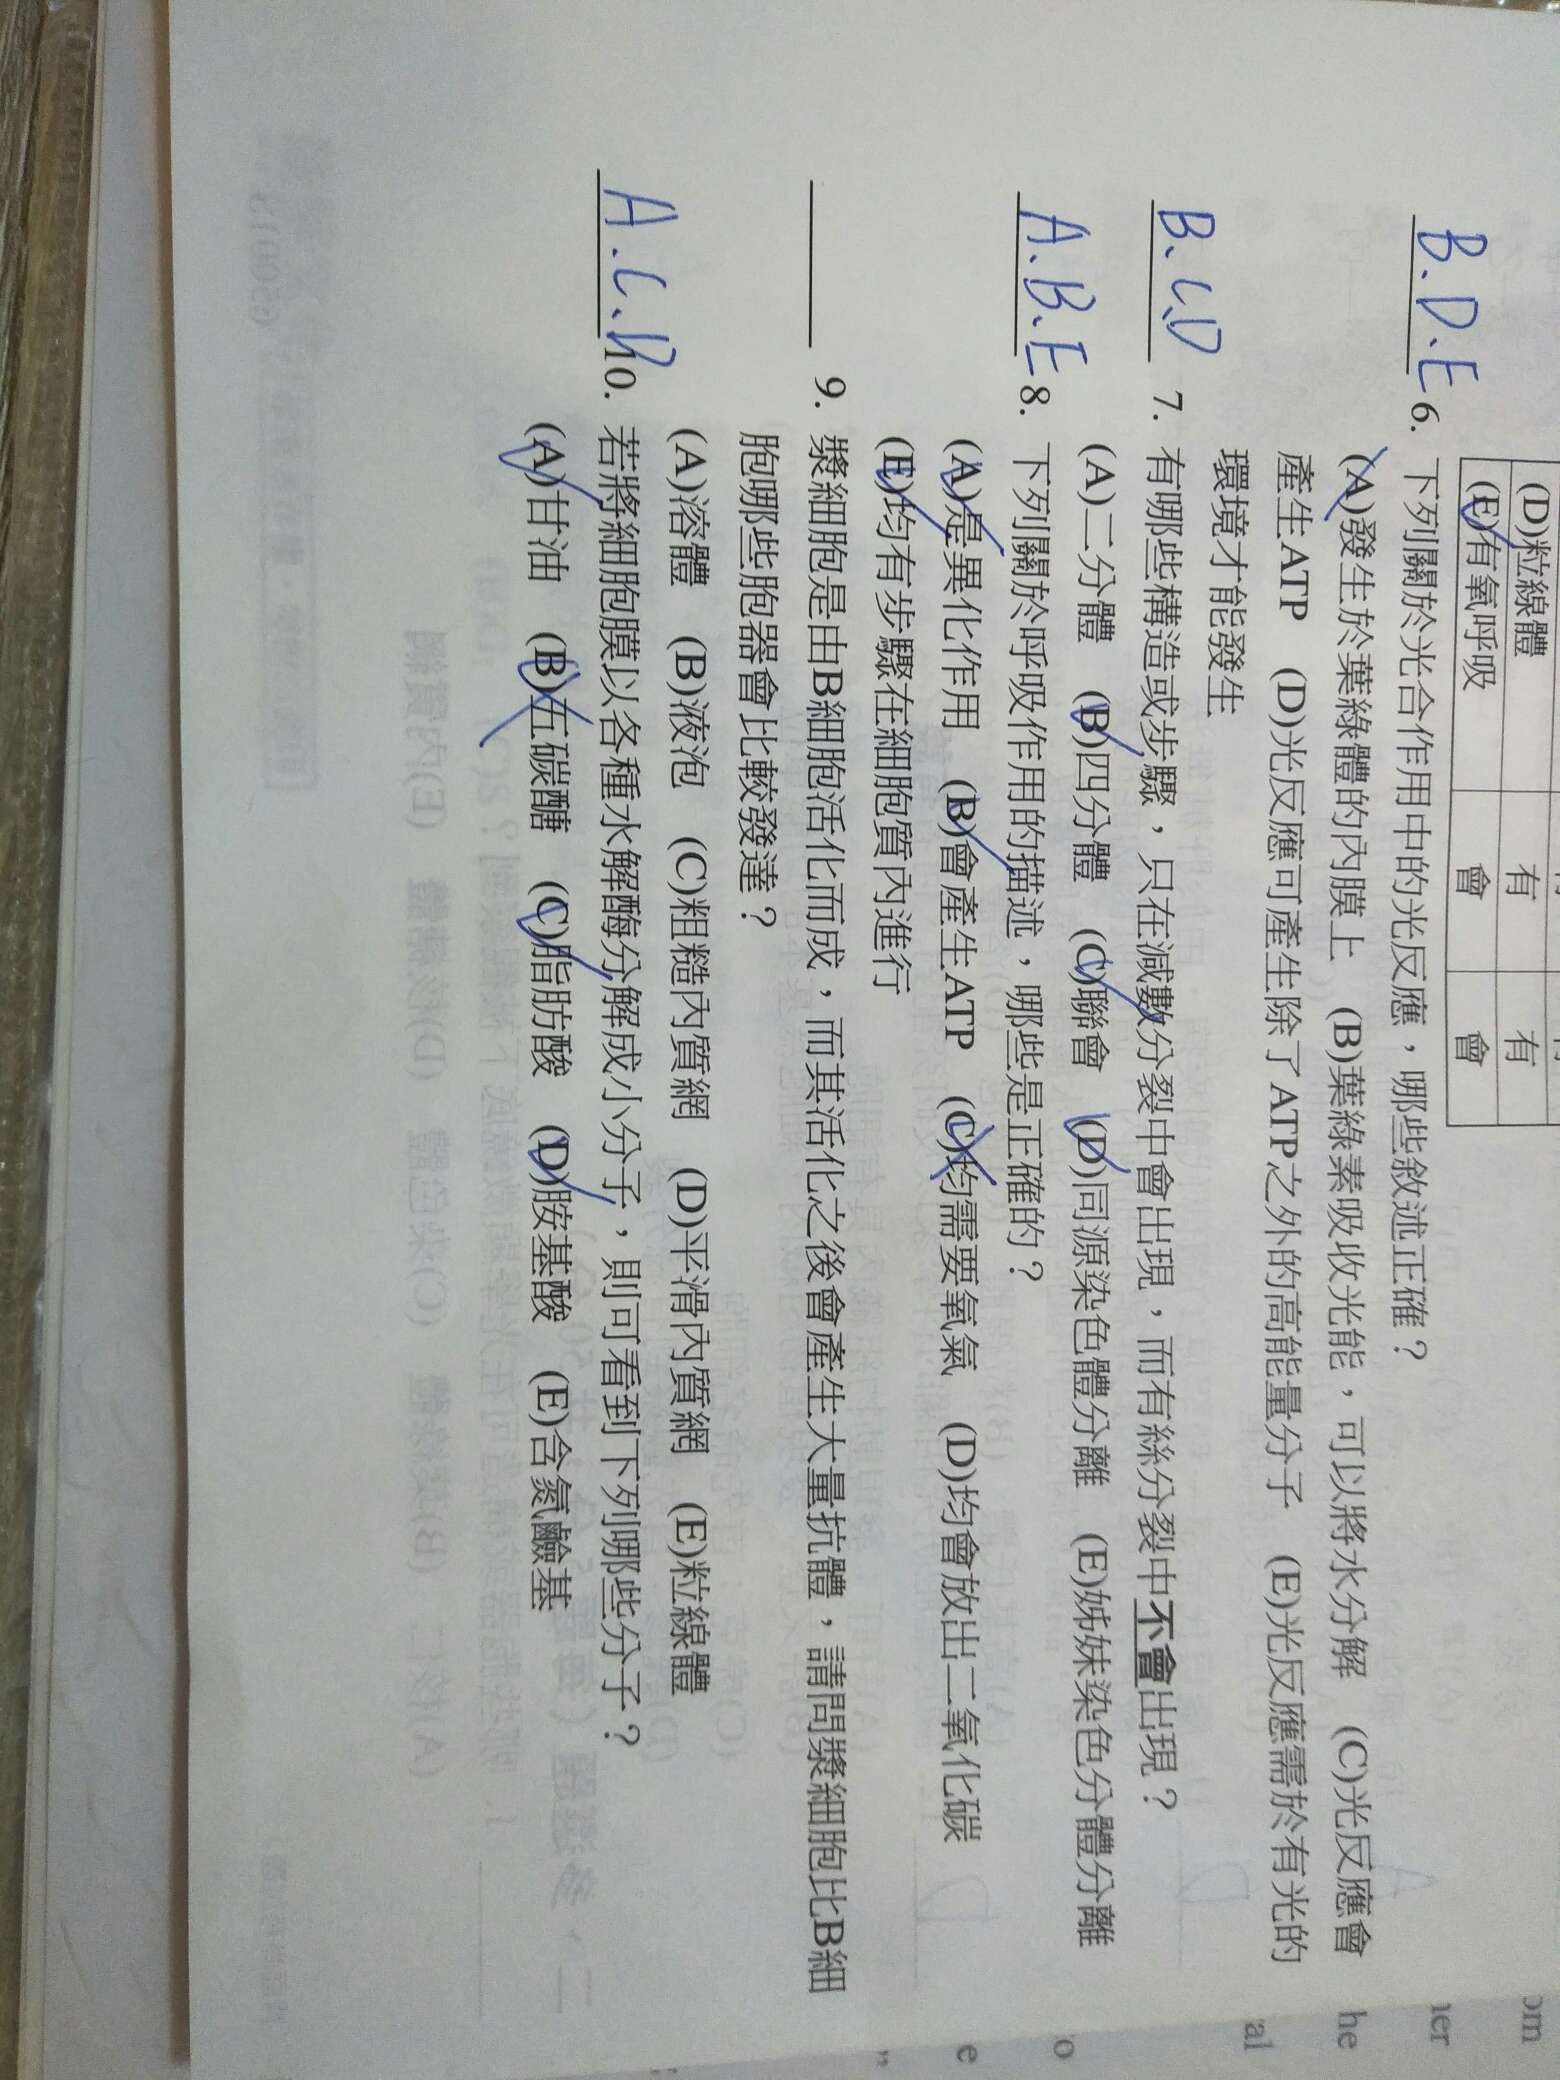 (D)粒線體 有 有
(E)有氧呼吸 會 會
B、D、E 6. 下列關於光合作用中的光反應，哪些敘述正確？
(A)發生於葉綠體的內膜上 (B)葉綠素吸收光能，可以將水分解 (C)光反應會
產生ATP (D)光反應可產生除了ATP之外的高能量分子 (E)光反應需於有光的
環境才能發生
B、C、D 7. 有哪些構造或步驟，只在減數分裂中會出現，而有絲分裂中不會出現？
(A)二分體 (B)四分體 (C)聯會 (D)同源染色體分離 (E)姊妹染色分體分離
A、B、E 8. 下列關於呼吸作用的描述，哪些是正確的？
(A)是異化作用 (B)會產生ATP (C)均需要氧氣 (D)均會放出二氧化碳
(E)均有步驟在細胞質內進行
9. 漿細胞是由B細胞活化而成，而其活化之後會產生大量抗體，請問漿細胞比B細
胞哪些胞器會比較發達？
(A)溶體 (B)液泡 (C)粗糙內質網 (D)平滑內質網 (E)粒線體
A、C、D 10. 若將細胞膜以各種水解酶分解成小分子，則可看到下列哪些分子？
(A)甘油 (B)五碳醣 (C)脂肪酸 (D)胺基酸 (E)含氮鹼基
om
her
he
al
o
e
”